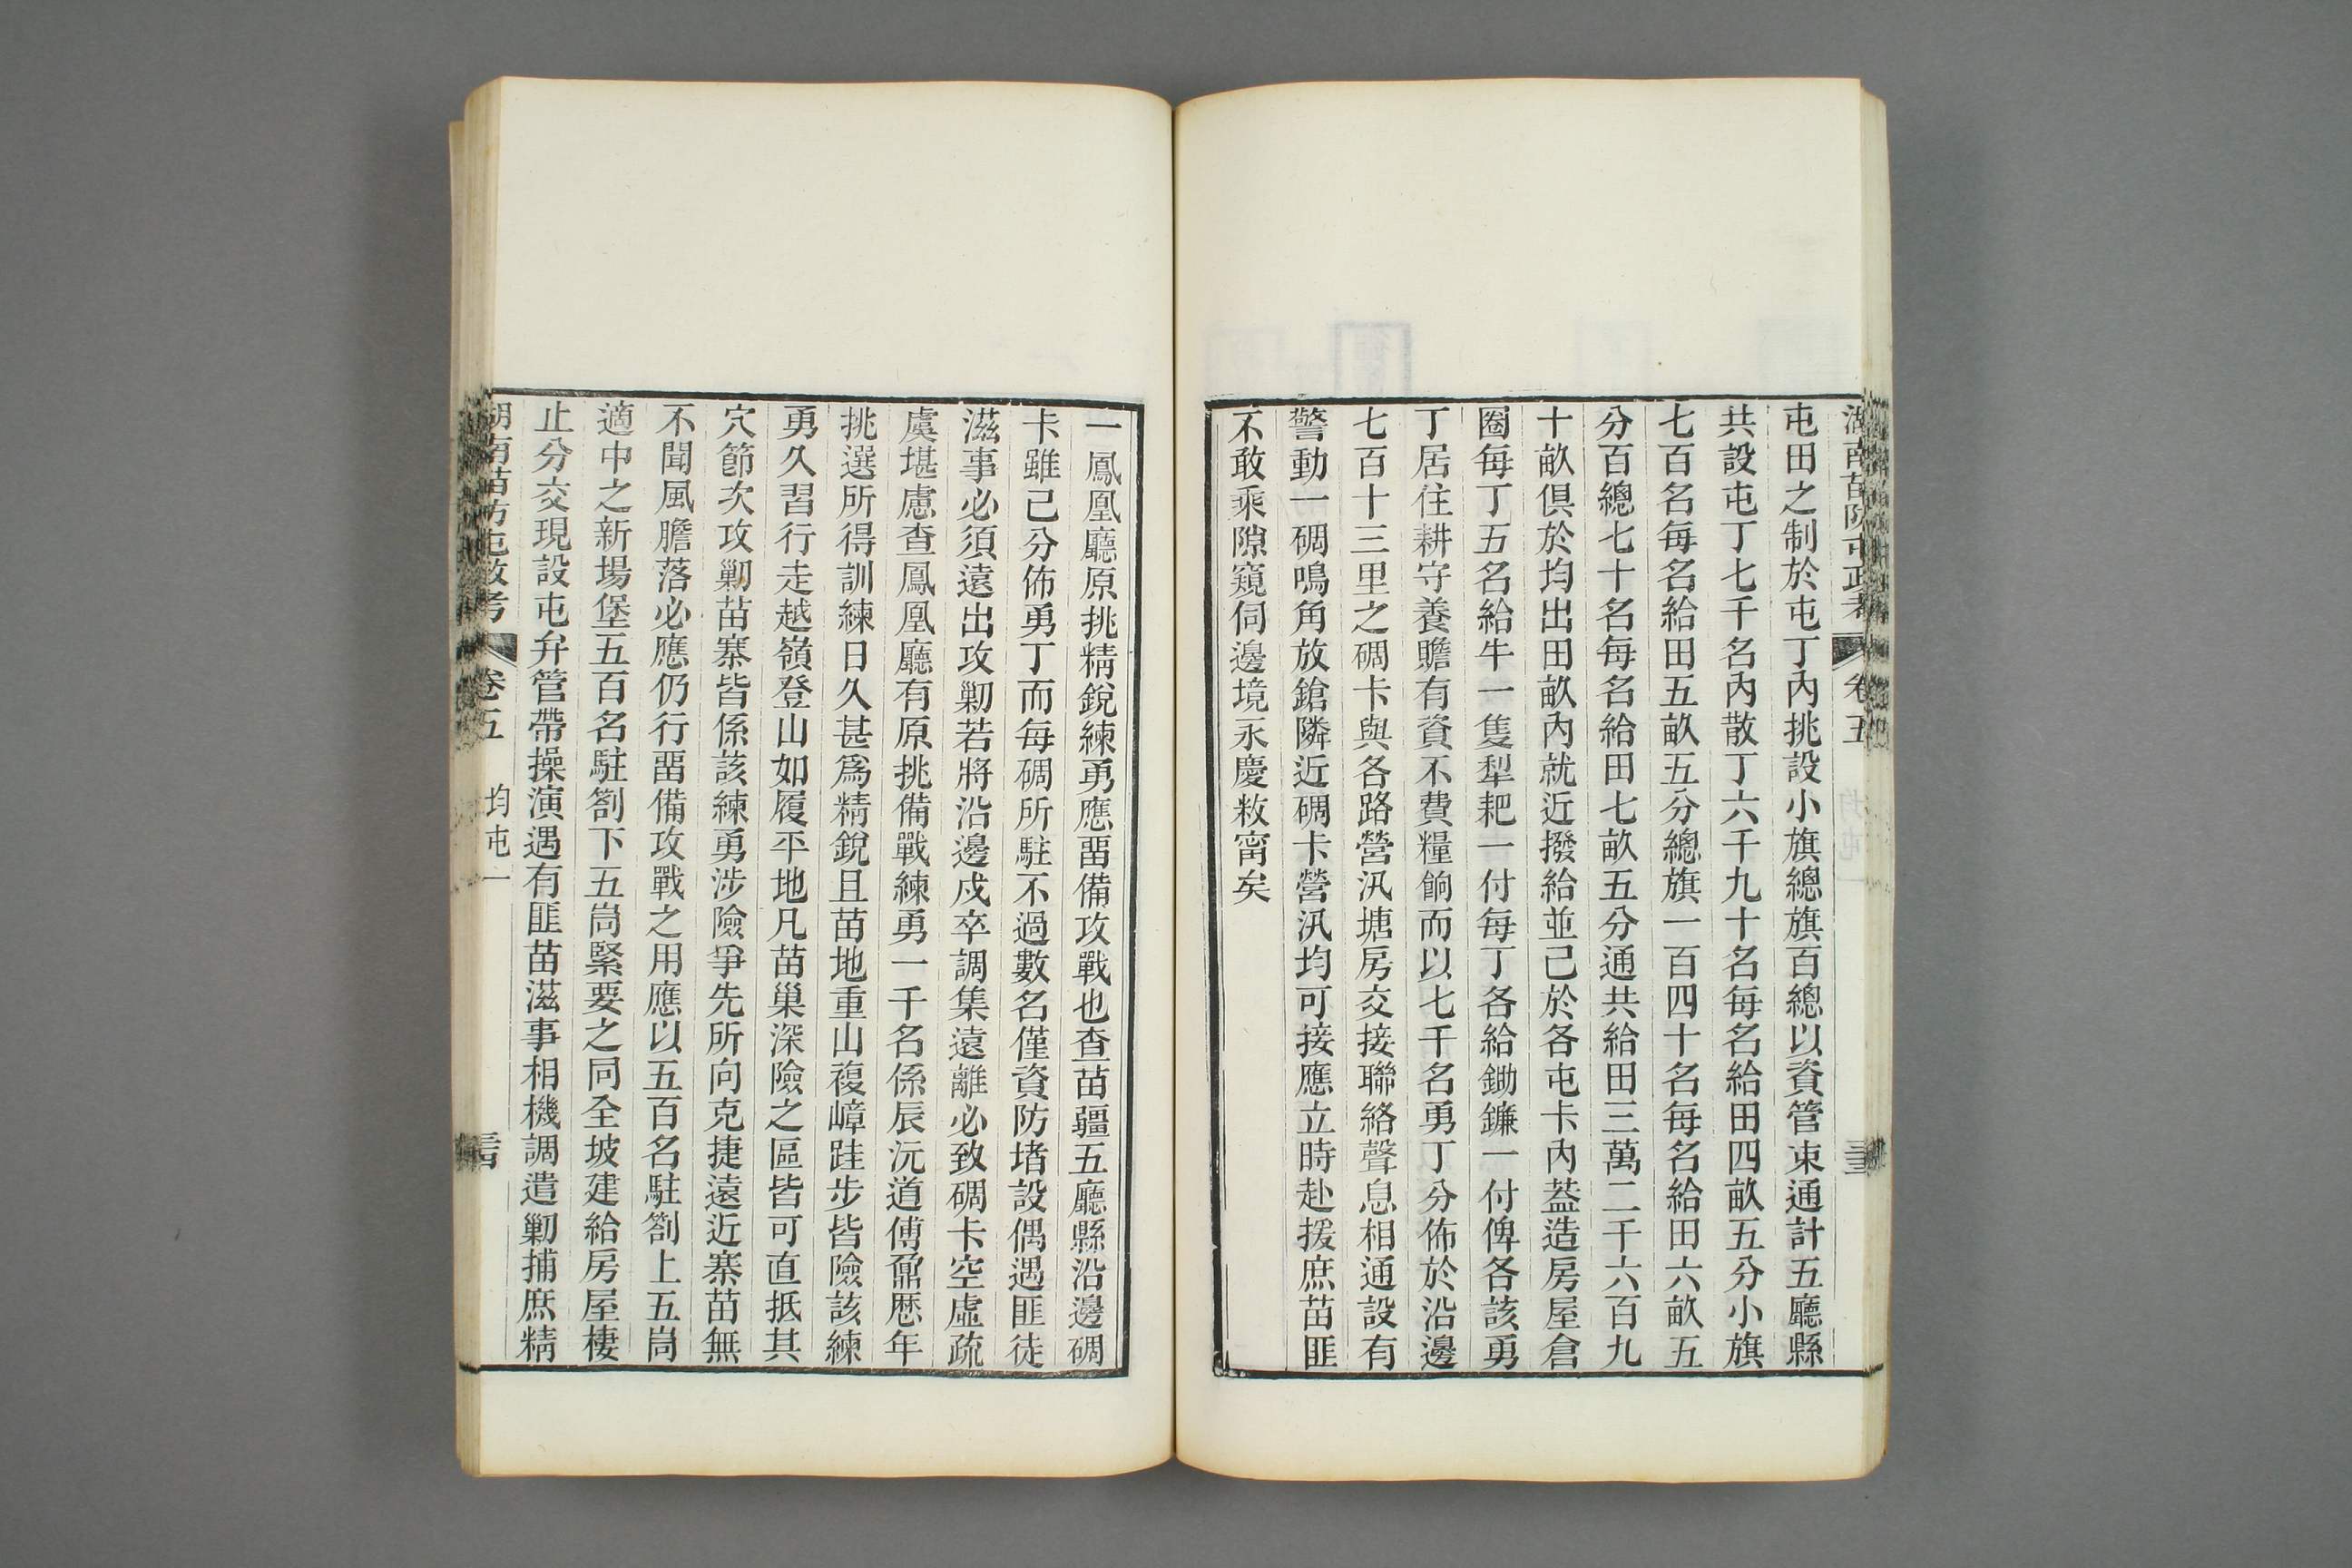 湖南苗防屯政考 卷五
屯田之制於屯丁內挑設小旗總旗百總以資管束通計五廳縣
共設屯丁七千名內散丁六千九十名每名給田四畝五分小旗
七百名每名給田五畝五分總旗一百四十名每名給田六畝五
分百總七十名每名給田七畝五分通共給田三萬二千六百九
十畝俱於均出田畝內就近撥給並已於各屯卡內蓋造房屋倉
圈每丁五名給牛一隻犁耙一付每丁各給鋤鐮一付俾各該勇
丁居住耕守養贍有資不費糧餉而以七千名勇丁分佈於沿邊
七百十三里之碉卡與各路營汛塘房交接聯絡聲息相通設有
警動一碉鳴角放鎗隣近碉卡營汛均可接應立時赴援庶苗匪
不敢乘隙窺伺邊境永慶敉甯矣
一鳳凰廳原挑精銳練勇應畱備攻戰也查苗疆五廳縣沿邊碉
卡雖已分佈勇丁而每碉所駐不過數名僅資防堵設偶遇匪徒
滋事必須遠出攻剿若將沿邊戍卒調集遠離必致碉卡空虛疏
虞堪慮查鳳凰廳有原挑備戰練勇一千名係辰沅道傅鼐歷年
挑選所得訓練日久甚爲精銳且苗地重山複嶂跬步皆險該練
勇久習行走越嶺登山如履平地凡苗巢深險之區皆可直抵其
穴節次攻剿苗寨皆係該練勇涉險爭先所向克捷遠近寨苗無
不聞風膽落必應仍行畱備攻戰之用應以五百名駐劄上五峝
適中之新場堡五百名駐劄下五峝緊要之同全坡建給房屋棲
止分交現設屯弁管帶操演遇有匪苗滋事相機調遣剿捕庶精
湖南苗防屯政考 卷五 均屯一